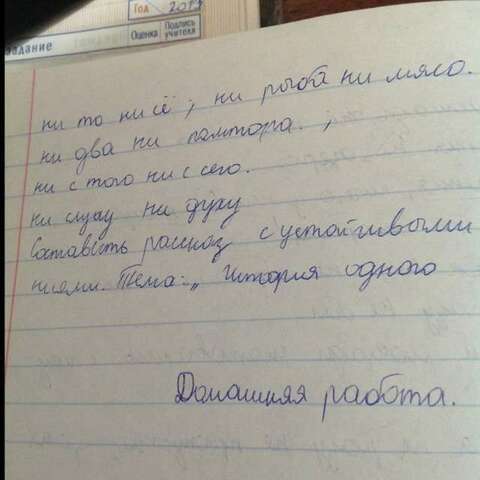 Год 2017
задание
Оценка
Подпись учителя
ни то ни сё; ни рыба ни мясо.
ни два ни полтора.;
ни с того ни с сего.
ни слуху ни духу
Составить рассказ с устойчивыми
ниями. Тема: „История одного
Домашняя работа.